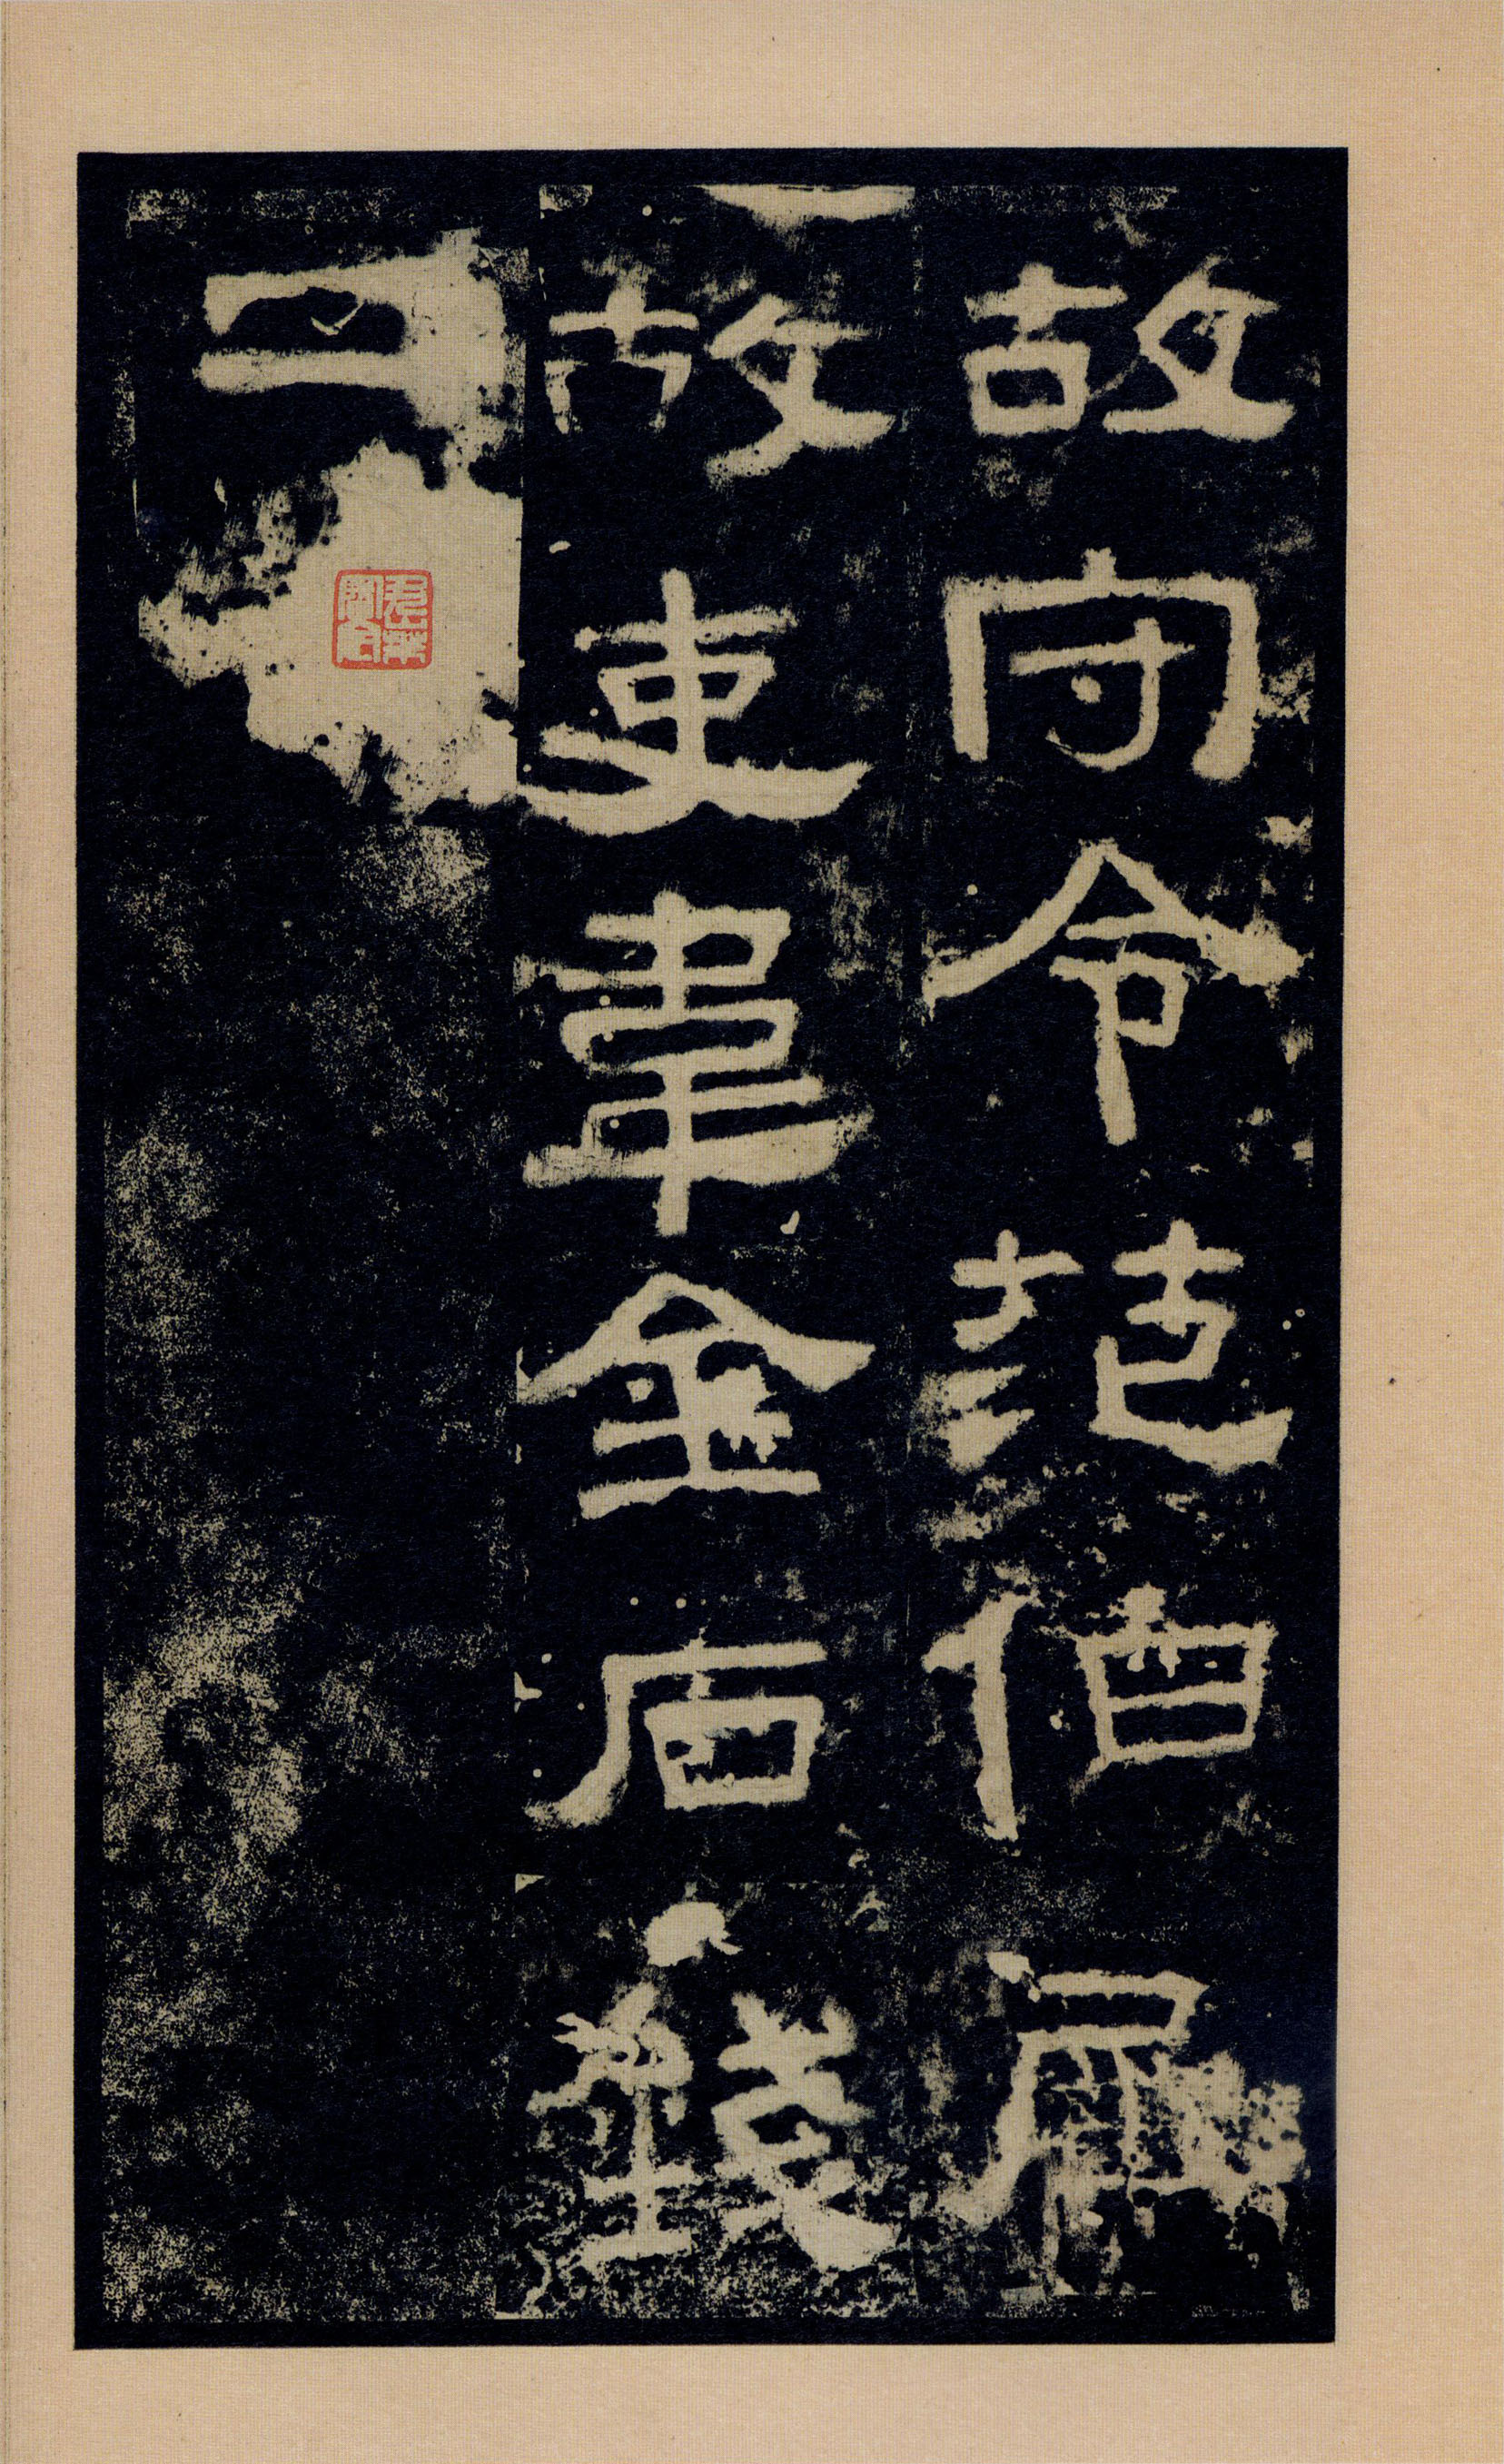 故守令范伯犀
故吏韋金石錢
二